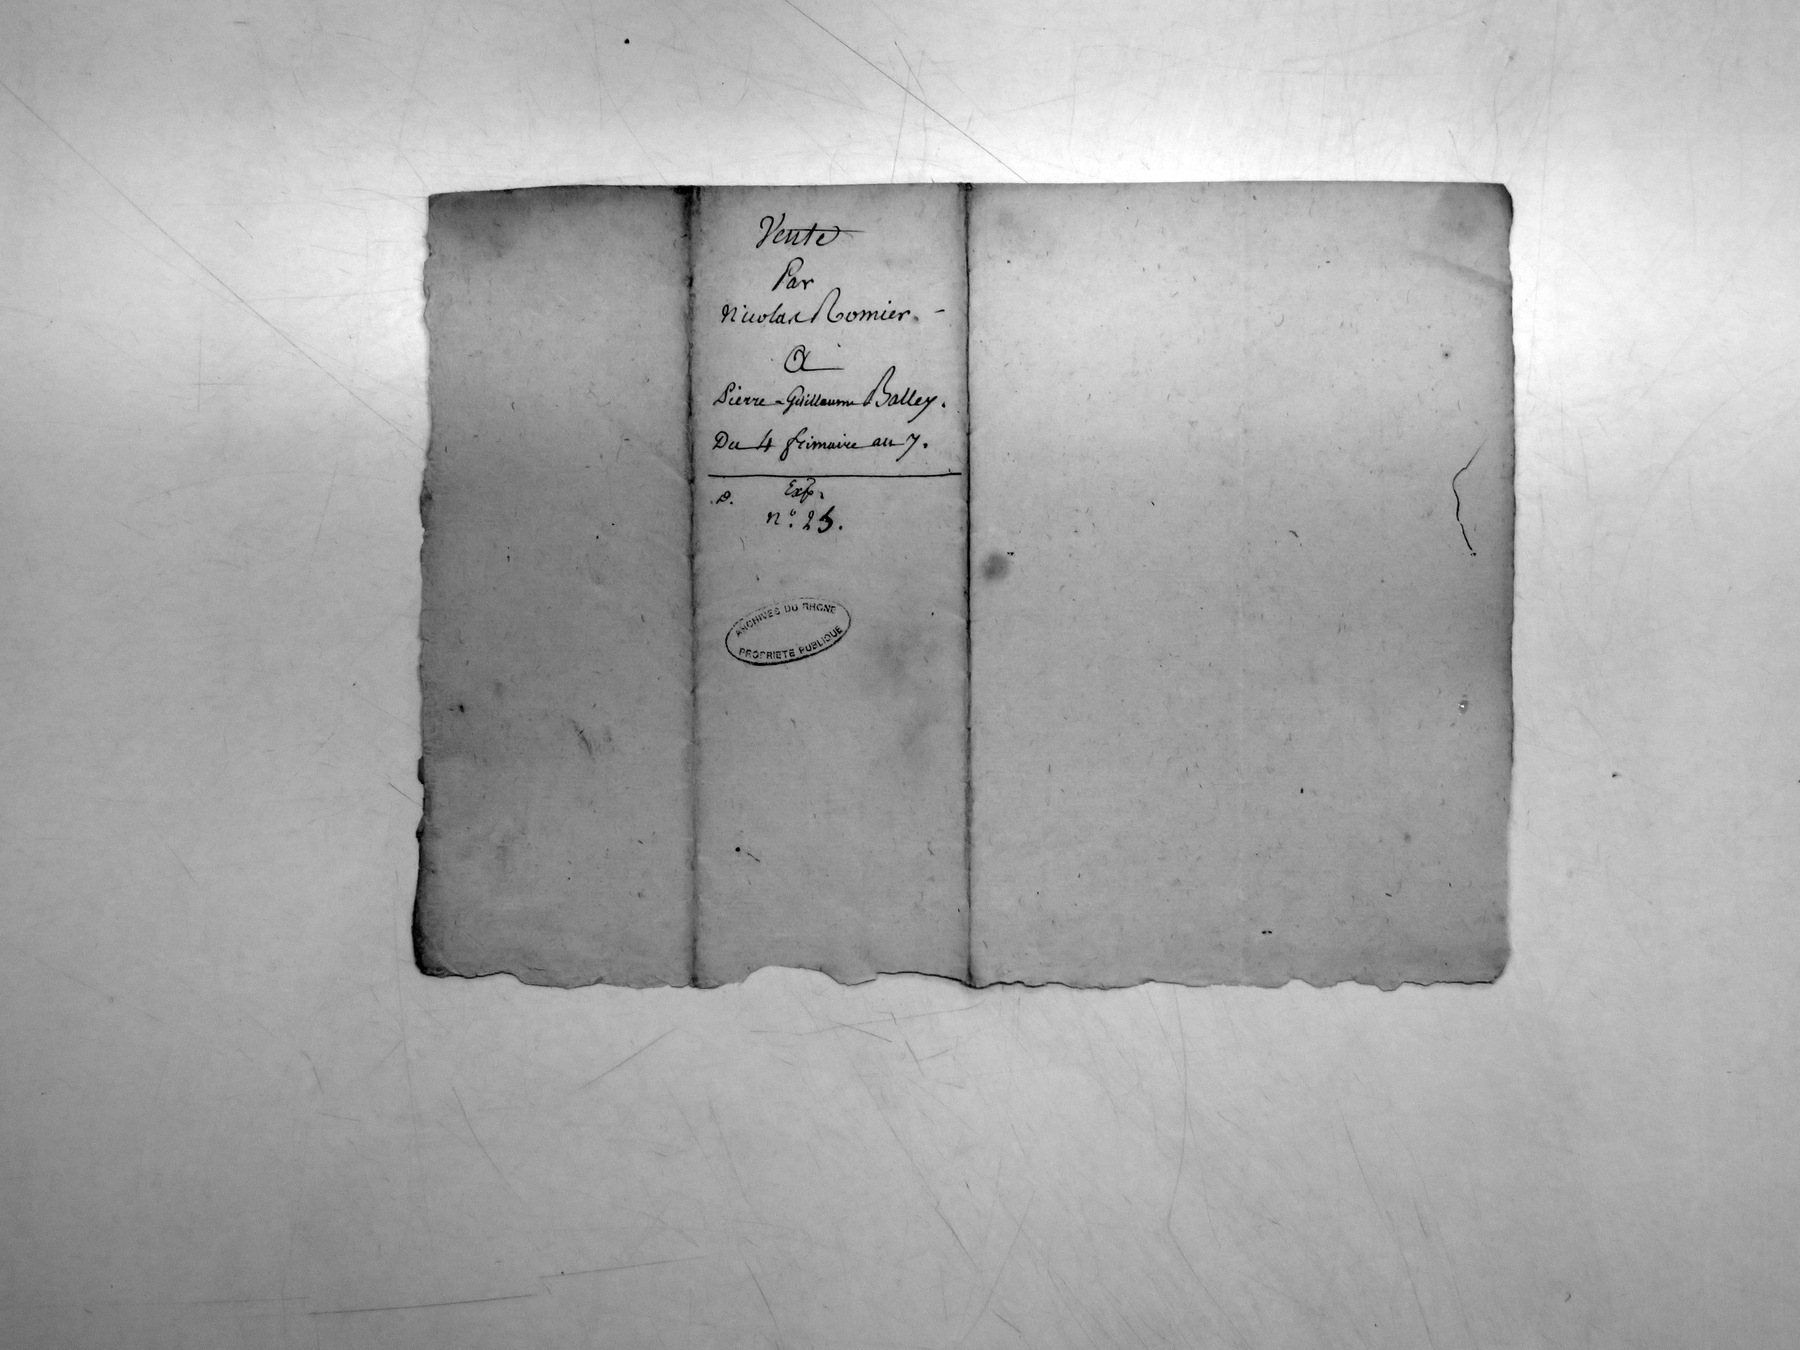 Vente
Par
Nicolas Romier. -
A
Pierre-Guillaume Balley.
Du 4 frimaire an 7.
Exp.
n.° 25.
ARCHIVES DU RHONE
PROPRIETE PUBLIQUE